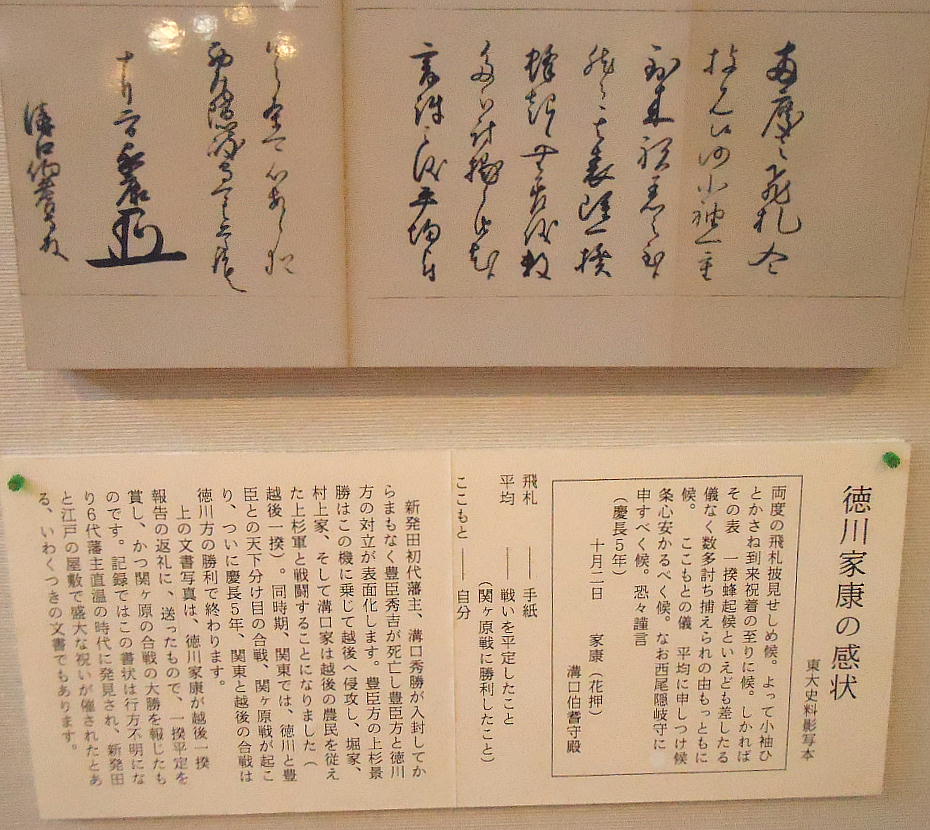 両度之飛札令
披見候仍小袖一重
到来祝着之至候
然者其表雖一揆
蜂起
平均
十月二日 家康
溝口伯耆守殿
徳川家康の感状
東大史料影写本
両度の飛札披見せしめ候。よって小袖ひ
とかさね到来祝着の至りに候。しかれば
その表　一揆蜂起候といえども差したる
儀なく数多討ち捕えられの由もっともに
候。　ここもとの儀　平均に申しつけ候
条心安かるべく候。なお西尾隠岐守に
申すべく候。恐々謹言
（慶長５年）
十月二日　家康（花押）
溝口伯耆守殿
飛札　――手紙
平均　――戦いを平定したこと
（関ヶ原戦に勝利したこと）
ここもと　――自分
新発田初代藩主、溝口秀勝が入封してか
らまもなく豊臣秀吉が死亡し豊臣方と徳川
方の対立が表面化します。豊臣方の上杉景
勝はこの機に乗じて越後へ侵攻し、堀家、
村上家、そして溝口家は越後の農民を従え
た上杉軍と戦闘することになりました（
越後一揆）。同時期、関東では、徳川と豊
臣との天下分け目の合戦、関ヶ原戦が起こ
り、ついに慶長５年、関東と越後の合戦は
徳川方の勝利で終わります。
上の文書写真は、徳川家康が越後一揆
報告の返礼に、送ったもので、一揆平定を
賞し、かつ関ヶ原の合戦の大勝を報じたも
のです。記録ではこの書状は行方不明にな
り６代藩主直温の時代に発見され、新発田
と江戸の屋敷で盛大な祝いが催されたとあ
る、いわくつきの文書でもあります。